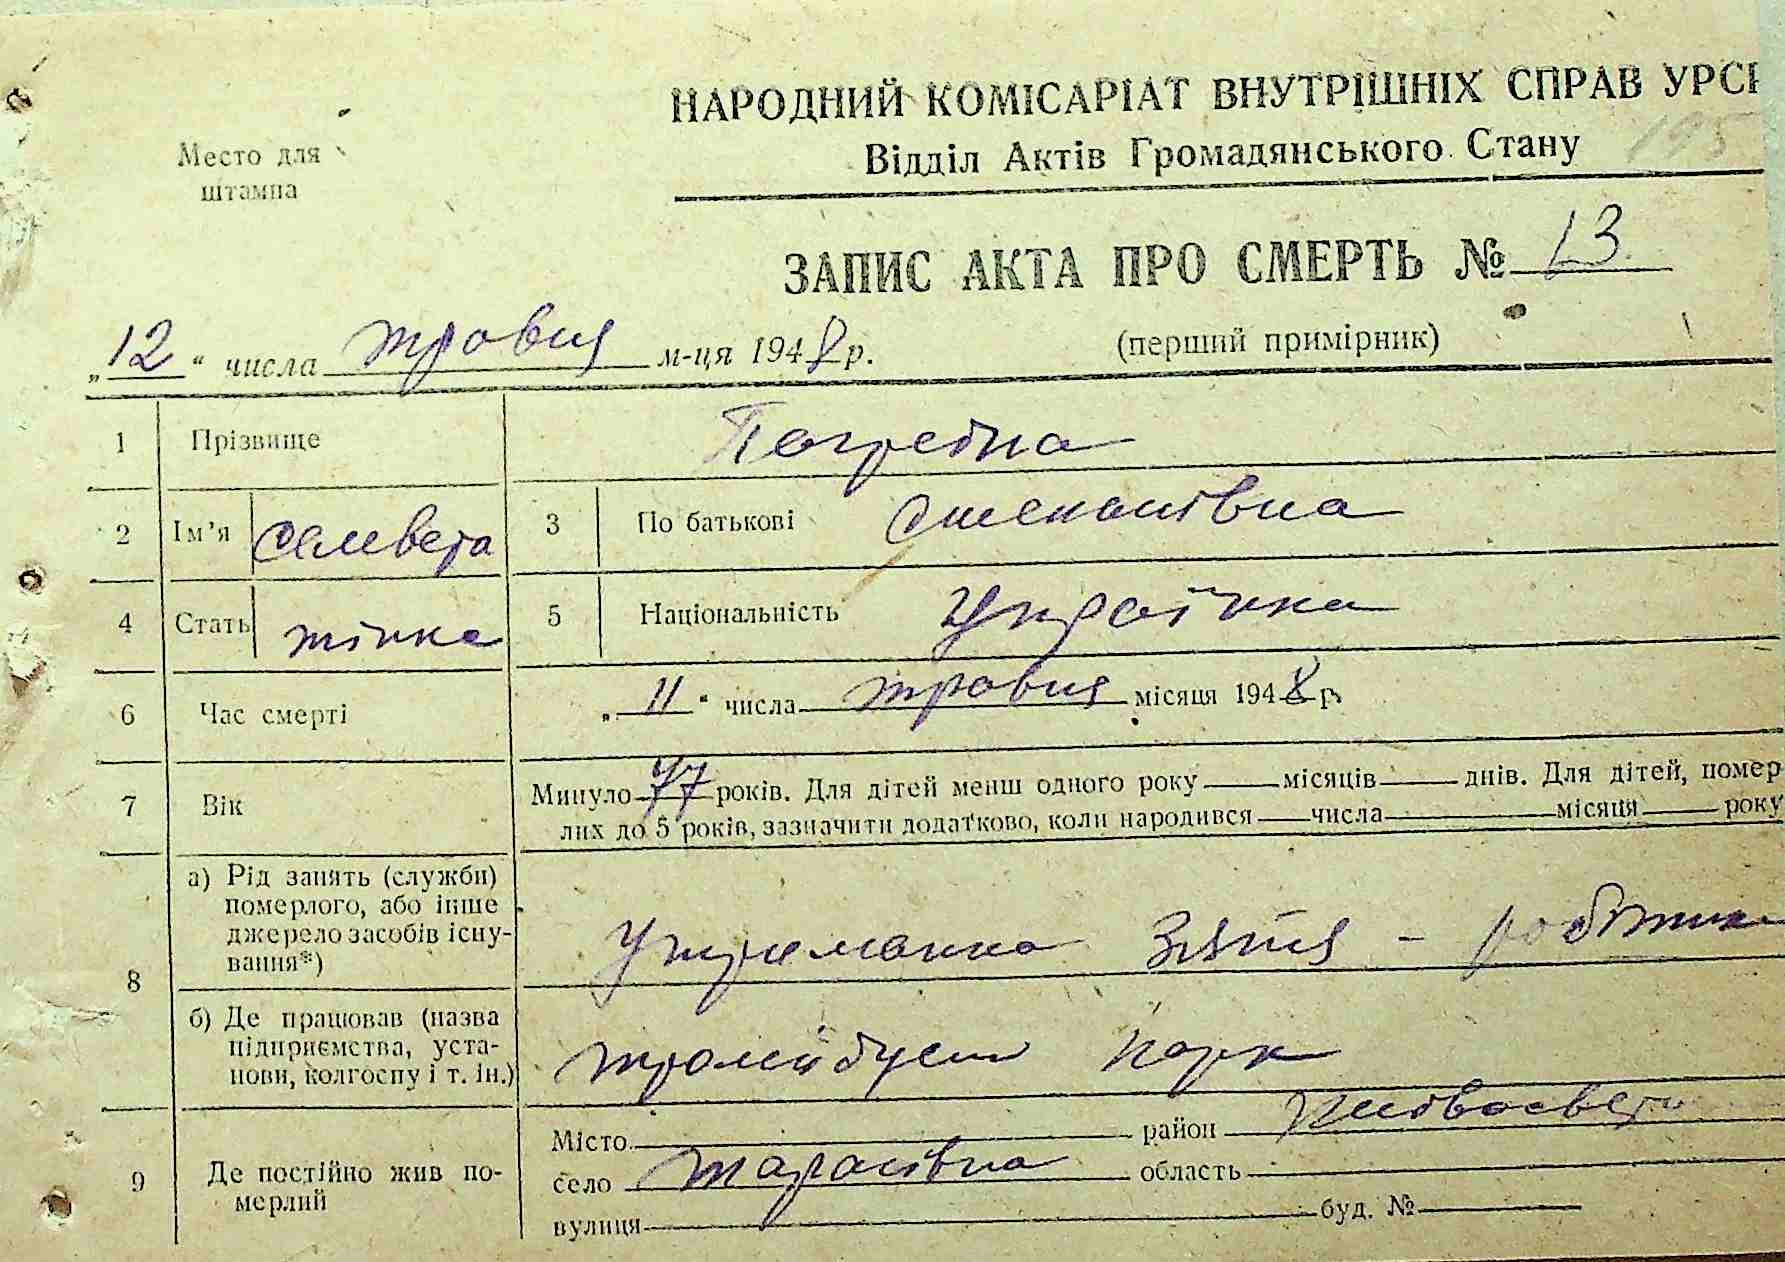 НАРОДНИЙ КОМІСАРІАТ ВНУТРІШНІХ СПРАВ УРСР
Відділ Актів Громадянського Стану 195
Место для
штампа
ЗАПИС АКТА ПРО СМЕРТЬ № 13.
„12“ числа травня м-ця 1948 р. (перший примірник)
1 Прізвище Погребна
2 Ім'я Селивета 3 По батькові Степанівна
4 Стать жінка 5 Національність Українка
6 Час смерті „11“ числа травня місяця 1948 р.
7 Вік Минуло 77 років. Для дітей менш одного року місяців днів. Для дітей, помер
лих до 5 років, зазначити додатково, коли народився числа місяця року
8 а) Рід занять (служби)
померлого, або інше
джерело засобів існу-
вання*) Утриманка зятя - робітник
б) Де працював (назва
підприємства, уста-
нови, колгоспу і т. ін.) тролейбусн парк
9 Де постійно жив по-
мерлий
Місто район
село Тарасівка область
вулиця буд. №